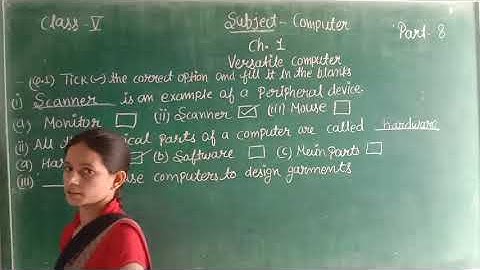 Class - V Subject - Computer Part - 8
Ch. 1
Versatile computer
(Q.1) Tick (✓) the correct option and fill it in the blanks
(i) Scanner is an example of a Peripheral device.
(a) Monitor ☐ (ii) Scanner ☑ (iii) Mouse ☐
(ii) All parts of a computer are called hardware
(a) (b) Software ☐ (c) Mein parts ☐
(iii) computers to design garments